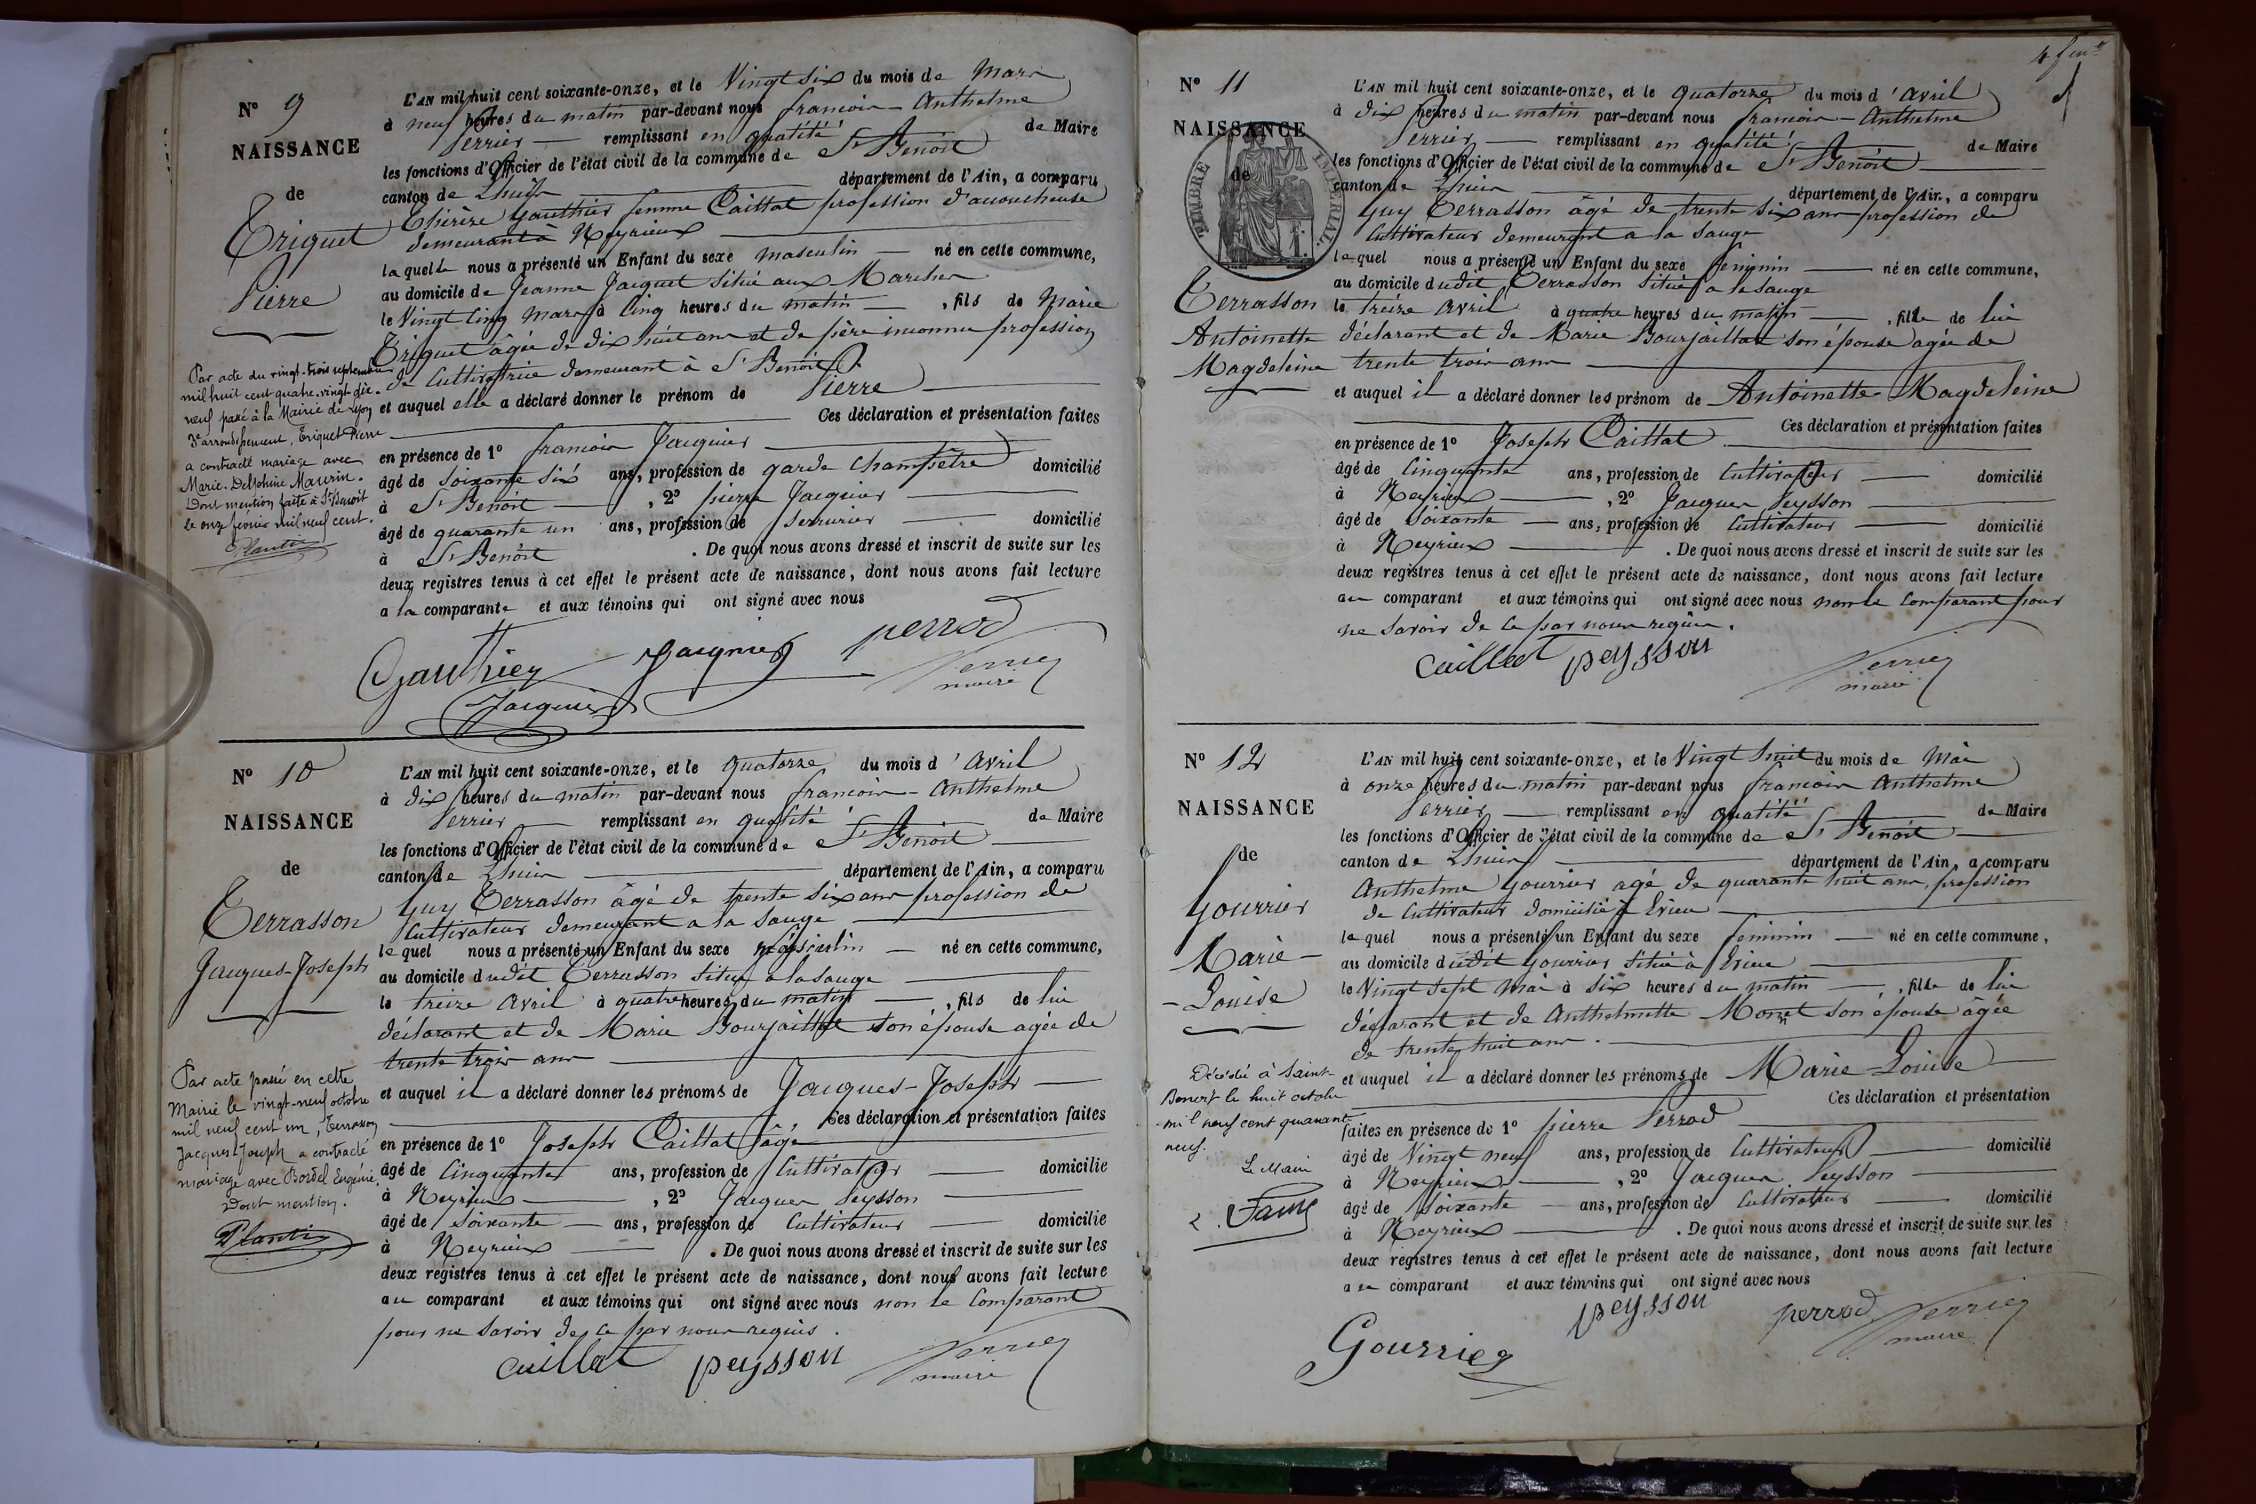 N° 9
NAISSANCE
de
Triquet
Pierre
Par acte du vingt-trois septembre
mil huit cent quatre-vingt-dix-
neuf passé à la Mairie de Lyon
3e arrondissement, Triquet Pierre
a contracté mariage avec
Marie-Delphine Maurin.
Dont mention faite à St Benoit
le onze février mil neuf cent.
Plantin
L'AN mil huit cent soixante-onze, et le Vingt six du mois de Mars
à neuf heures du matin par-devant nous françois-Anthelme
Perrier remplissant en qualité de Maire
les fonctions d'Officier de l'état civil de la commune de St Benoit
canton de Lhuis département de l'Ain, a comparu
Thérèze Gauthier femme Caillat profession d'accoucheuse
demeurant à Neyrieux
laquelle nous a présenté un Enfant du sexe masculin né en cette commune,
au domicile de Jeanne Jacquet située aux Marches
le Vingt cinq mars à cinq heures du matin, fils de Marie
Triquet âgée de dix huit ans et de père inconnu profession
de Cultivatrice demeurant à St Benoit
et auquel elle a déclaré donner le prénom de Pierre
Ces déclaration et présentation faites
en présence de 1° françois Jacquier
âgé de soixante six ans, profession de garde champêtre domicilié
à St Benoit, 2° pierre Jacquier
âgé de quarante un ans, profession de serrurier domicilié
à St Benoit. De quoi nous avons dressé et inscrit de suite sur les
deux registres tenus à cet effet le présent acte de naissance, dont nous avons fait lecture
a la comparante et aux témoins qui ont signé avec nous
Gauthier Jacquier perrod
Jacquier Perrier
maire
N° 10
NAISSANCE
de
Terrasson
Jacques-Joseph
Par acte passé en cette
Mairie le vingt-neuf octobre
mil neuf cent un, Terrasson
Jacques-Joseph a contracté
mariage avec Bordel Eugénie.
Dont mention.
Plantin
L'AN mil huit cent soixante-onze, et le quatorze du mois d'Avril
à dix heures du matin par-devant nous françois-Anthelme
Perrier remplissant en qualité de Maire
les fonctions d'Officier de l'état civil de la commune de St Benoit
canton de Lhuis département de l'Ain, a comparu
Guy Terrasson âgé de trente six ans profession de
Cultivateur demeurant a la Sauge
lequel nous a présenté un Enfant du sexe masculin né en cette commune,
au domicile dudit Terrasson situé a la sauge
le treize avril à quatre heures du matin, fils de lui
déclarant et de Marie Bourjaillat son épouse agée de
trente trois ans
et auquel il a déclaré donner les prénoms de Jacques-Joseph
Ces déclaration et présentation faites
en présence de 1° Joseph Caillat âgé
âgé de Cinquante ans, profession de Cultivateur domicilié
à Neyrieux, 2° Jacques Peysson
âgé de soixante ans, profession de Cultivateur domicilié
à Neyrieux. De quoi nous avons dressé et inscrit de suite sur les
deux registres tenus à cet effet le présent acte de naissance, dont nous avons fait lecture
au comparant et aux témoins qui ont signé avec nous non le Comparant
pour ne savoir de ce par nous requis.
Caillat peysson Perrier
maire
N° 11
NAISSANCE
de
TIMBRE IMPERIAL
Terrasson
Antoinette
Magdeleine
L'AN mil huit cent soixante-onze, et le quatorze du mois d'Avril
à dix heures du matin par-devant nous françois-Anthelme
Perrier remplissant en qualité de Maire
les fonctions d'Officier de l'état civil de la commune de St Benoit
canton de Lhuis département de l'Ain, a comparu
Guy Terrasson âgé de trente six ans profession de
Cultivateur demeurant a la Sauge
lequel nous a présenté un Enfant du sexe feminin né en cette commune,
au domicile dudit Terrasson située a la sauge
le treize Avril à quatre heures du matin, fille de lui
déclarant et de Marie Bourjaillat son épouse agée de
trente trois ans
et auquel il a déclaré donner les prénom de Antoinette Magdeleine
Ces déclaration et présentation faites
en présence de 1° Joseph Caillat
âgé de Cinquante ans, profession de Cultivateur domicilié
à Neyrieux, 2° Jacques Peysson
âgé de Soixante ans, profession de Cultivateur domicilié
à Neyrieux. De quoi nous avons dressé et inscrit de suite sur les
deux registres tenus à cet effet le présent acte de naissance, dont nous avons fait lecture
au comparant et aux témoins qui ont signé avec nous non le Comparant pour
ne savoir de ce par nous requis.
Caillat peysson Perrier
maire
N° 12
NAISSANCE
de
Gourrier
Marie-
Louise
Décédé à Saint-
Benoit le huit octobre
mil neuf cent quarante
neuf.
Le Maire
L'AN mil huit cent soixante-onze, et le Vingt huit du mois de Mai
à onze heures du matin par-devant nous françois Anthelme
Perrier remplissant en qualité de Maire
les fonctions d'Officier de l'état civil de la commune de St Benoit
canton de Lhuis département de l'Ain, a comparu
Anthelme Gourrier agé de quarante huit ans, profession
de Cultivateur domicilié à Erieu
lequel nous a présenté un Enfant du sexe feminin né en cette commune,
au domicile dudit Gourrier située à Erieu
le Vingt sept Mai à six heures du matin, fille de lui
déclarant et de Anthelmette Monet son épouse âgée
de trente huit ans.
et auquel il a déclaré donner les prénoms de Marie-Louise
Ces déclaration et présentation
faites en présence de 1° pierre Perrod
âgé de Vingt neuf ans, profession de Cultivateur domicilié
à Neyrieux, 2° Jacques Peysson
âgé de Soixante ans, profession de Cultivateur domicilié
à Neyrieux. De quoi nous avons dressé et inscrit de suite sur les
deux registres tenus à cet effet le présent acte de naissance, dont nous avons fait lecture
au comparant et aux témoins qui ont signé avec nous
peysson perrod Perrier
maire
Gourrier